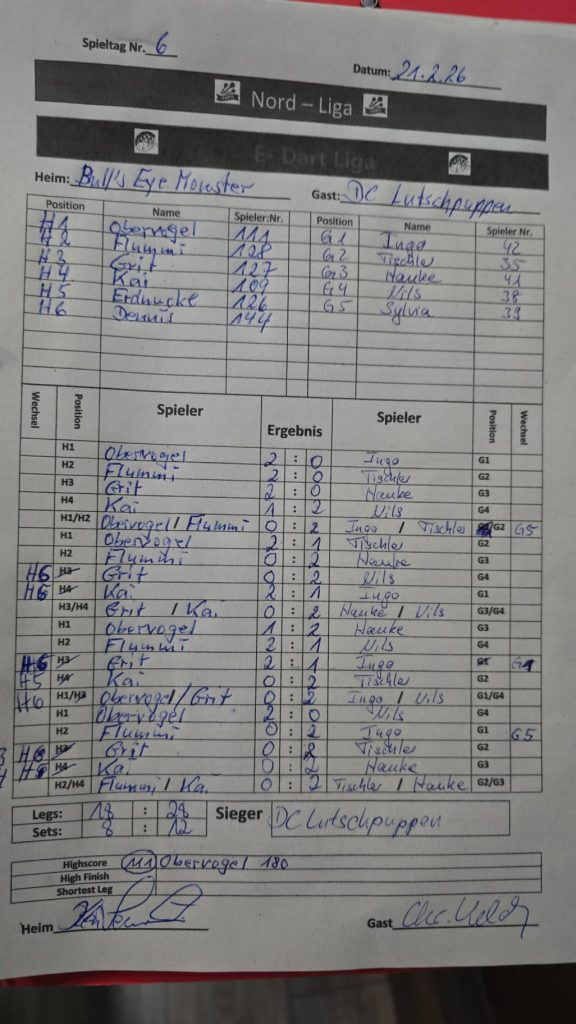 Spieltag Nr. 6
Datum: 21.2.26
Nord – Liga
E- Dart Liga
Heim: Bull's Eye Monster Gast: DC Lutschpuppen
Position Name Spieler:Nr. Position Name Spieler Nr.
H1 Obervogel 111 G1 Ingo 42
H2 Flummi 128 G2 Tischler 35
H3 Grit 127 G3 Hauke 41
H4 Kai 109 G4 Nils 38
H5 Erdnucke 126 G5 Sylvia 39
H6 Dennis 144
Wechsel Position Spieler Ergebnis Spieler Position Wechsel
H1 Obervogel 2 : 0 Ingo G1
H2 Flummi 2 : 0 Tischler G2
H3 Grit 2 : 0 Hauke G3
H4 Kai 1 : 2 Nils G4
H1/H2 Obervogel / Flummi 0 : 2 Ingo / Tischler /G2 G5
H1 Obervogel 2 : 1 Tischler G2
H2 Flummi 0 : 2 Hauke G3
H6 H3 Grit 0 : 2 Nils G4
H6 H4 Kai 2 : 1 Ingo G1
H3/H4 Grit / Kai 0 : 2 Hauke / Nils G3/G4
H1 Obervogel 1 : 2 Hauke G3
H2 Flummi 2 : 1 Nils G4
H6 H3 Grit 2 : 1 Ingo G1
H5 H4 Kai 0 : 2 Tischler G2
H6 H1/H3 Obervogel / Grit 0 : 2 Ingo / Nils G1/G4
H1 Obervogel 2 : 0 Nils G4
H2 Flummi 0 : 2 Ingo G1 G5
H3 Grit 0 : 2 Tischler G2
H4 Kai 0 : 2 Hauke G3
H2/H4 Flummi / Kai 0 : 2 Tischler / Hauke G2/G3
Legs: 18 : 28 Sieger DC Lutschpuppen
Sets: 8 : 12
Highscore 111 Obervogel 180
High Finish
Shortest Leg
Heim Gast